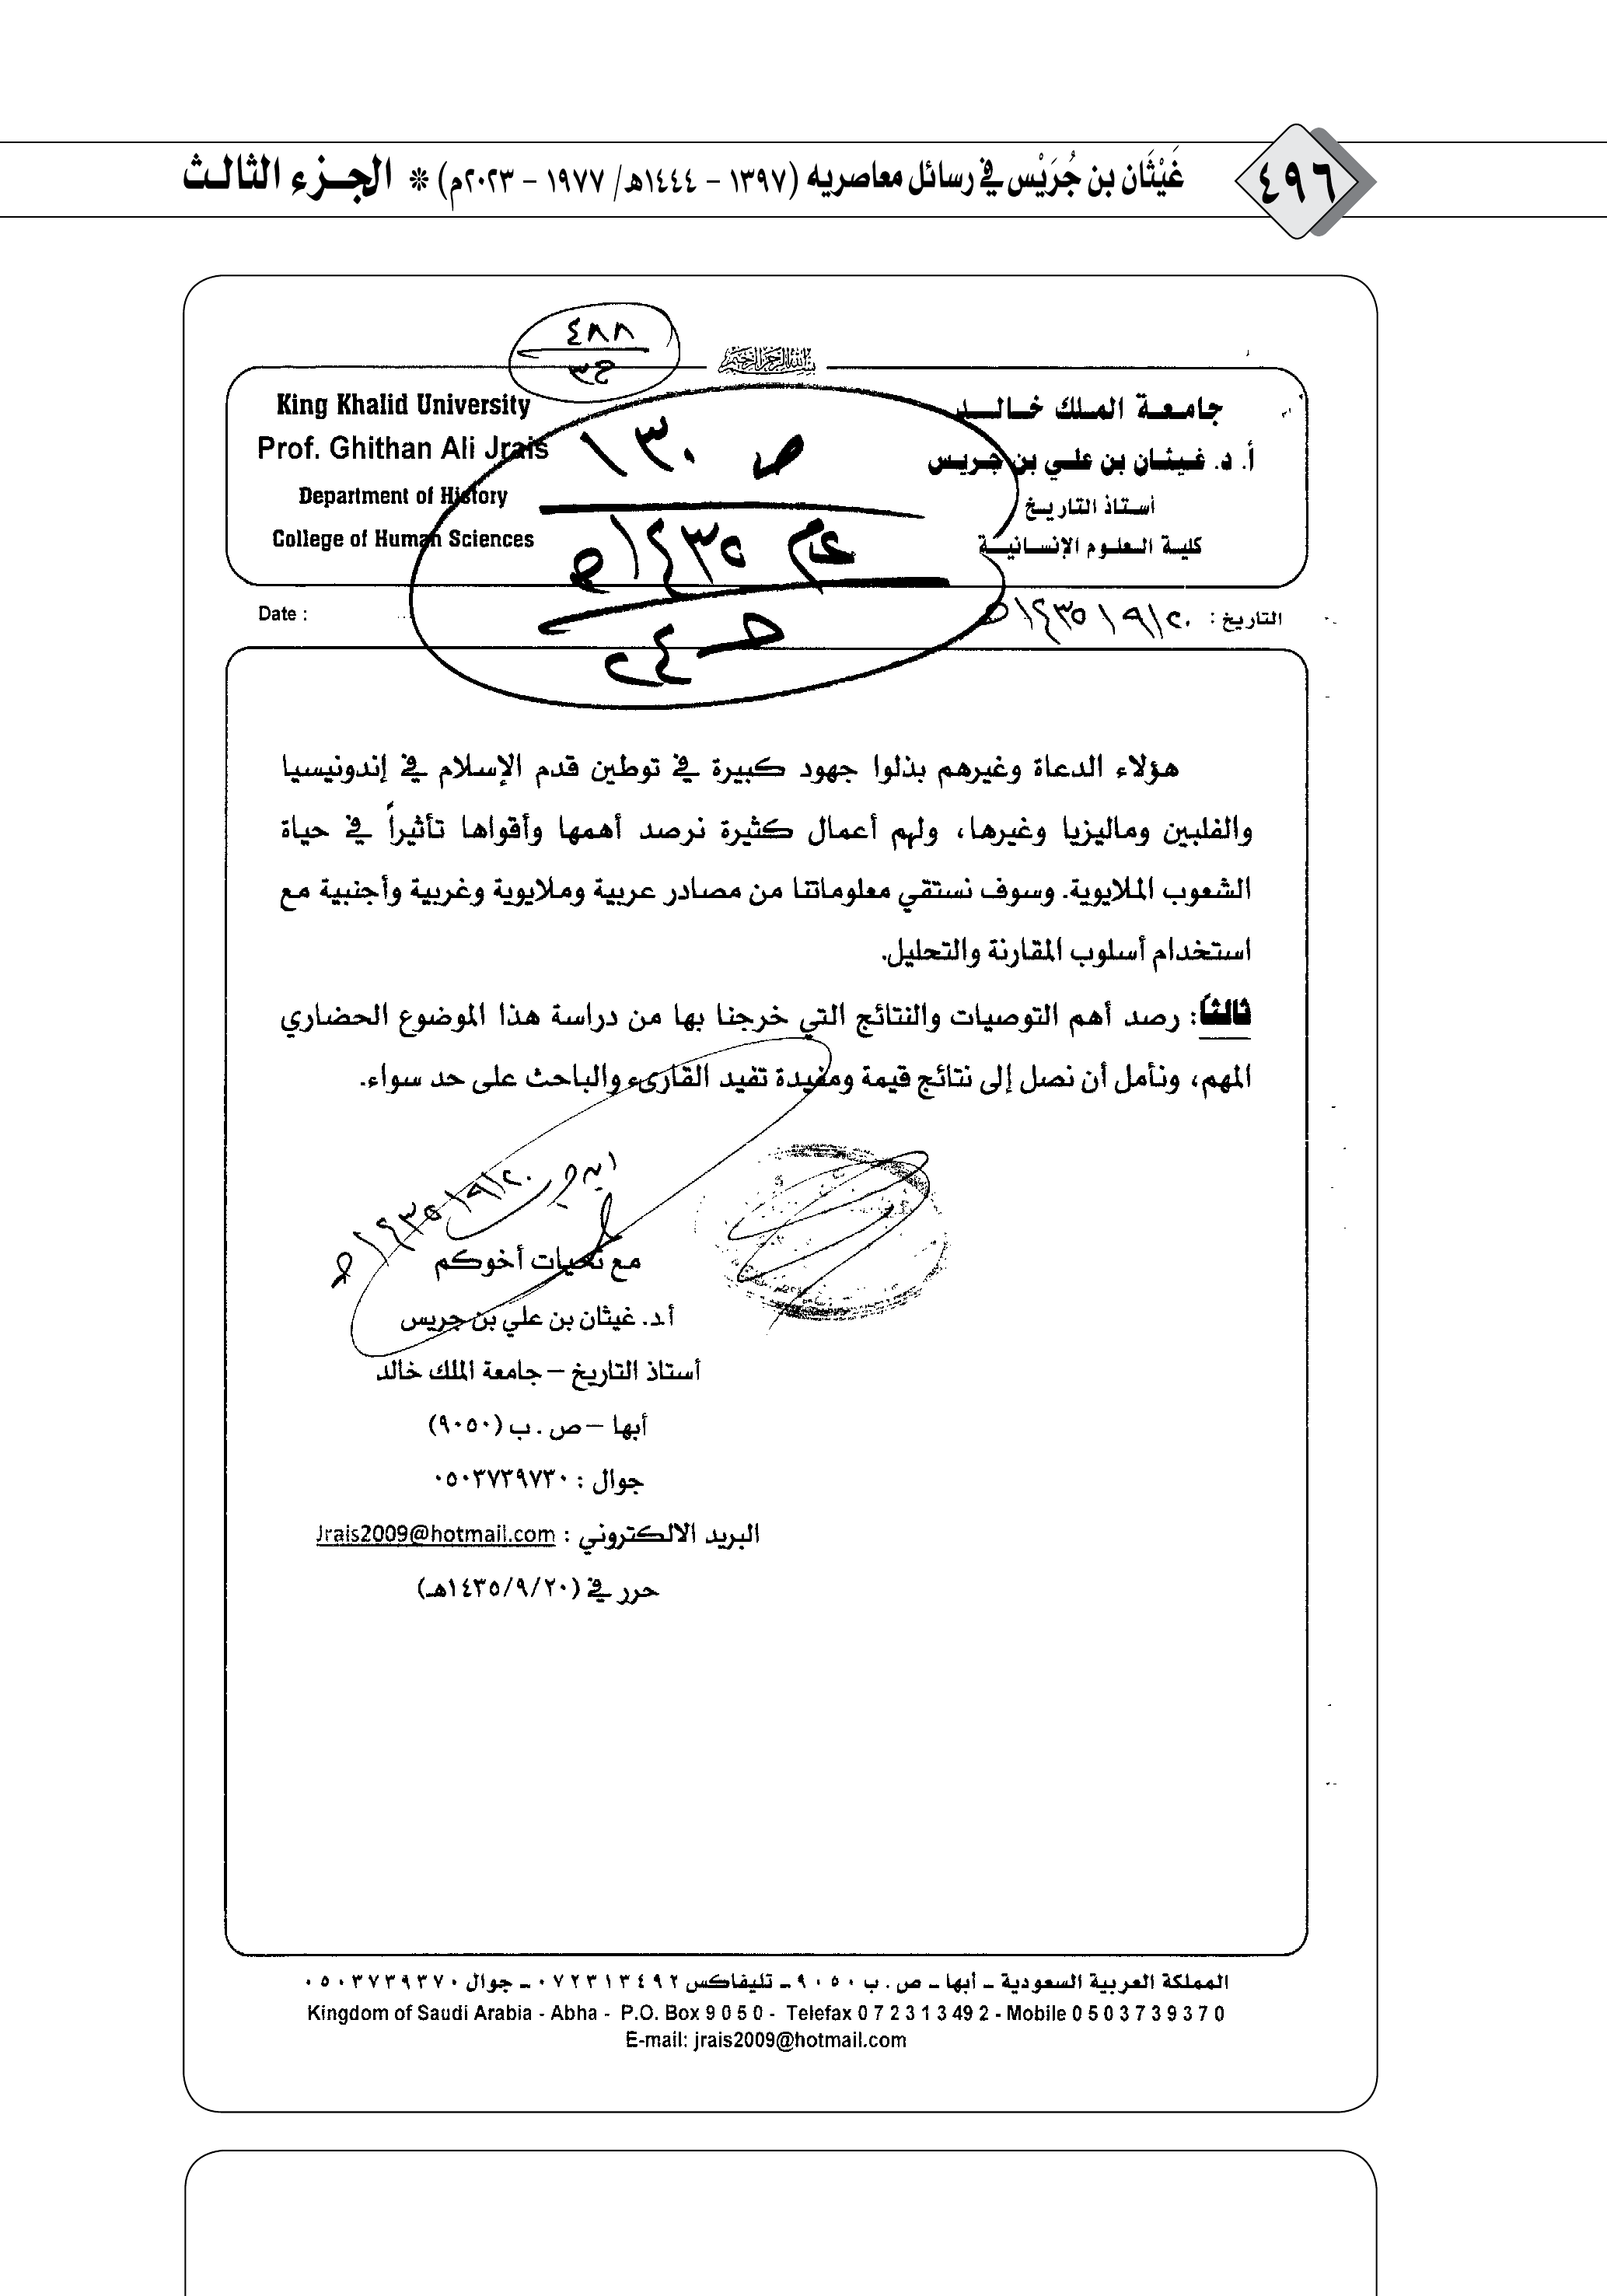 ٤٩٦
غَيْثَان بن جُرَيْس في رسائل معاصريه (١٣٩٧ - ١٤٤٤هـ/ ١٩٧٧ - ٢٠٢٣م) * الجـزء الثالـث
٤٨٨
ج٣
جامعـة الملـك خـالـد
أ. د. غـيـثـان بن علـي بن جريـس
أستـاذ التاريـخ
كليـة العلـوم الإنسـانيـة
King Khalid University
Prof. Ghithan Ali Jrais
Department of History
College of Human Sciences
ص ١٣٠
عام ١٤٣٥هـ
التاريخ : ١٤٣٥/٩/٢٠هـ
Date :
هؤلاء الدعاة وغيرهم بذلوا جهود كبيرة في توطين قدم الإسلام في إندونيسيا
والفلبين وماليزيا وغيرها، ولهم أعمال كثيرة نرصد أهمها وأقواها تأثيراً في حياة
الشعوب الملايوية. وسوف نستقي معلوماتنا من مصادر عربية وملايوية وغربية وأجنبية مع
استخدام أسلوب المقارنة والتحليل.
ثالثاً: رصد أهم التوصيات والنتائج التي خرجنا بها من دراسة هذا الموضوع الحضاري
المهم، ونأمل أن نصل إلى نتائج قيمة ومفيدة تفيد القارىء والباحث على حد سواء.
١٤٣٥/٩/٢٠هـ
مع تحيات أخوكم
أ.د. غيثان بن علي بن جريس
أستاذ التاريخ – جامعة الملك خالد
أبها – ص . ب (٩٠٥٠)
جوال : ٠٥٠٣٧٣٩٧٣٠
البريد الالكتروني : Jrais2009@hotmail.com
حرر في (١٤٣٥/٩/٢٠هـ)
المملكة العربية السعودية ـ أبها ـ ص . ب ٩٠٥٠ ـ تليفاكس ٠٧٢٣١٣٤٩٢ ـ جوال ٠٥٠٣٧٣٩٣٧٠
Kingdom of Saudi Arabia - Abha - P.O. Box 9 0 5 0 - Telefax 0 7 2 3 1 3 49 2 - Mobile 0 5 0 3 7 3 9 3 7 0
E-mail: jrais2009@hotmail.com